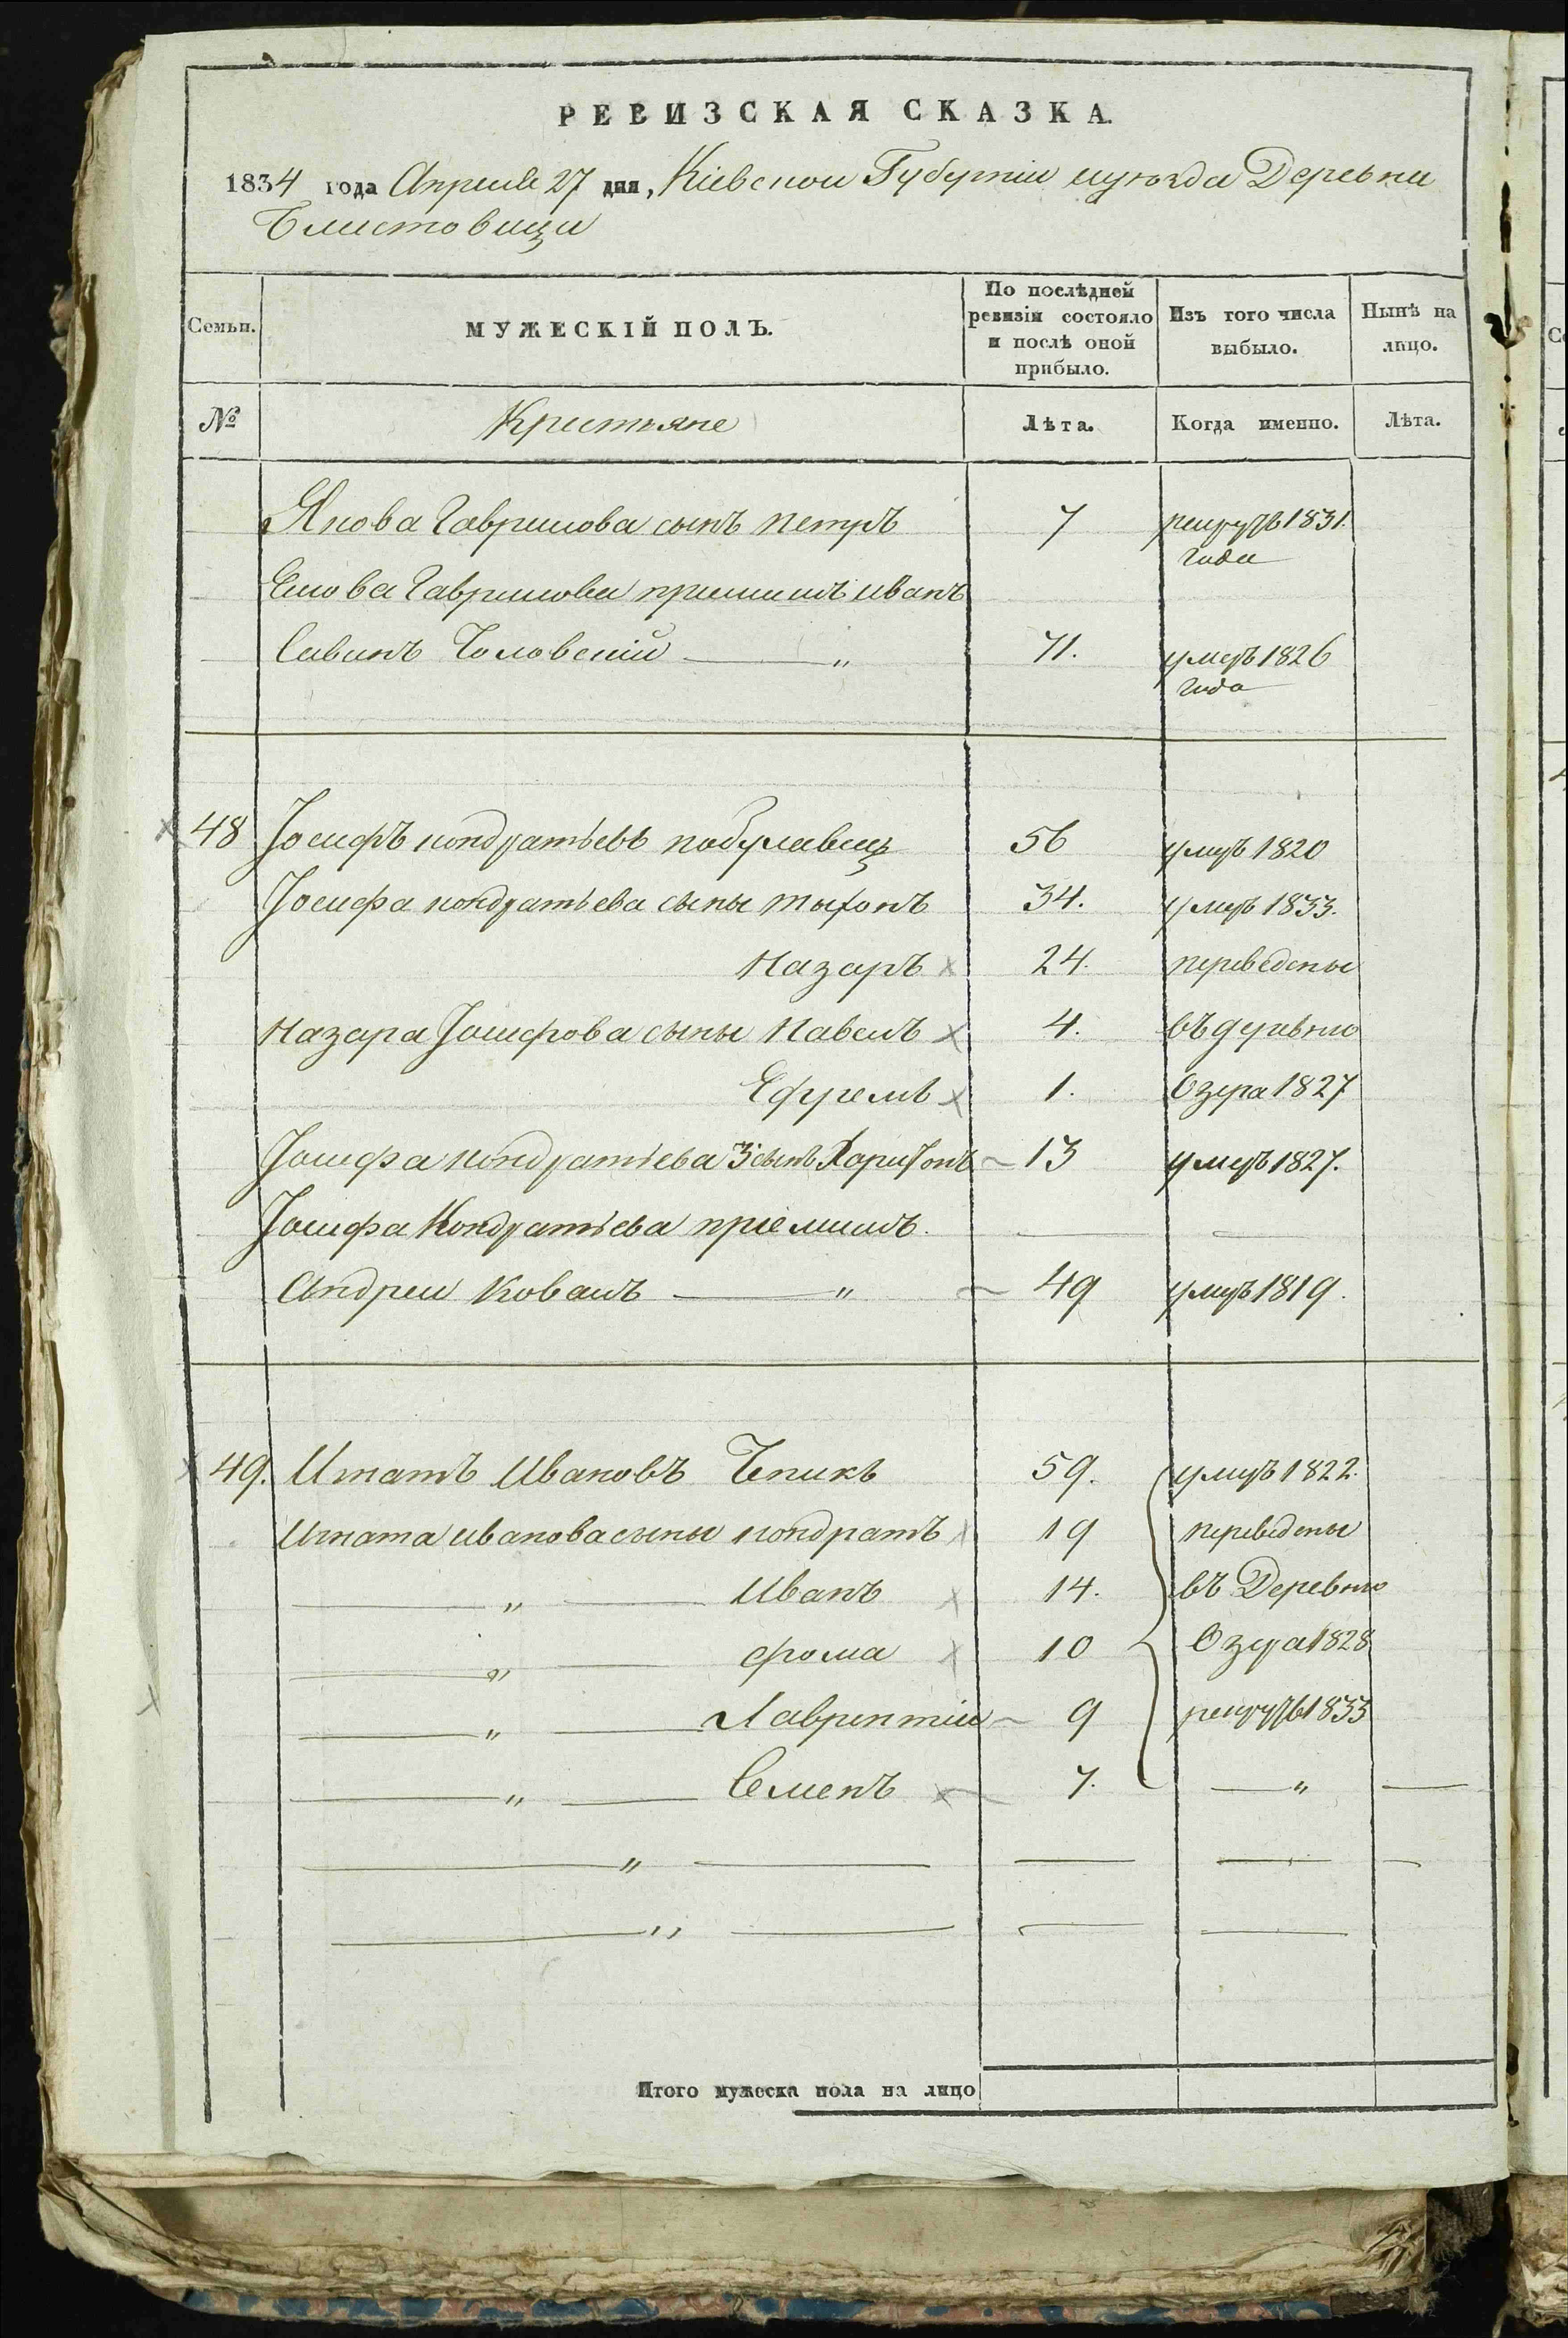 РЕВИЗСКАЯ СКАЗКА.
1834 года Апреля 27 дня, Кіевской Губерніи и уѣзда Деревни
Блистовици
Семьи.
МУЖЕСКІЙ ПОЛЪ.
По послѣдней ревизіи состояло и послѣ оной прибыло.
Изъ того числа выбыло.
Нынѣ на лицо.
№
Крестьяне
Лѣта.
Когда именно.
Лѣта.
Якова Гаврилова сынъ Петръ 7 рекрутъ 1831.
года
Гаврилова приимышъ Иванъ
Савинъ 71. умеръ 1826
года
48 Іосифъ Кондратьевъ 56 умеръ 1820
Іосифа Кондратьева сыны Тыхонъ 34. умеръ 1833.
Назаръ 24. переведены
Назара Іосифова сыны Павелъ 4. въ деревню
Ефремъ 1. Озера 1827
Іосифа Кондратіева 3й сынъ Харитонъ 13 умеръ 1827.
Іосифа Кондратіева пріемышъ.
Андрей Ковалъ " 49 умеръ 1819.
49. Игнатъ Ивановъ Чепикъ 59. умеръ 1822.
Игната Иванова сыны Кондратъ 19 переведены
" Иванъ 14. въ Деревню
" Фома 10 Озера 1828
" Лаврентій 9 рекрутъ 1833
" Семенъ 7. "
"
"
Итого мужеска пола на лицо